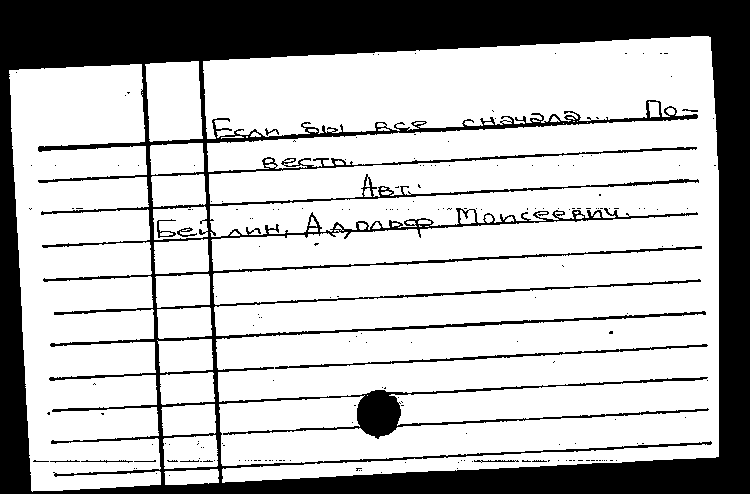 Если бы все сначала... По-
весть.
Авт.:
Бейлин, Адольф Моисеевич.